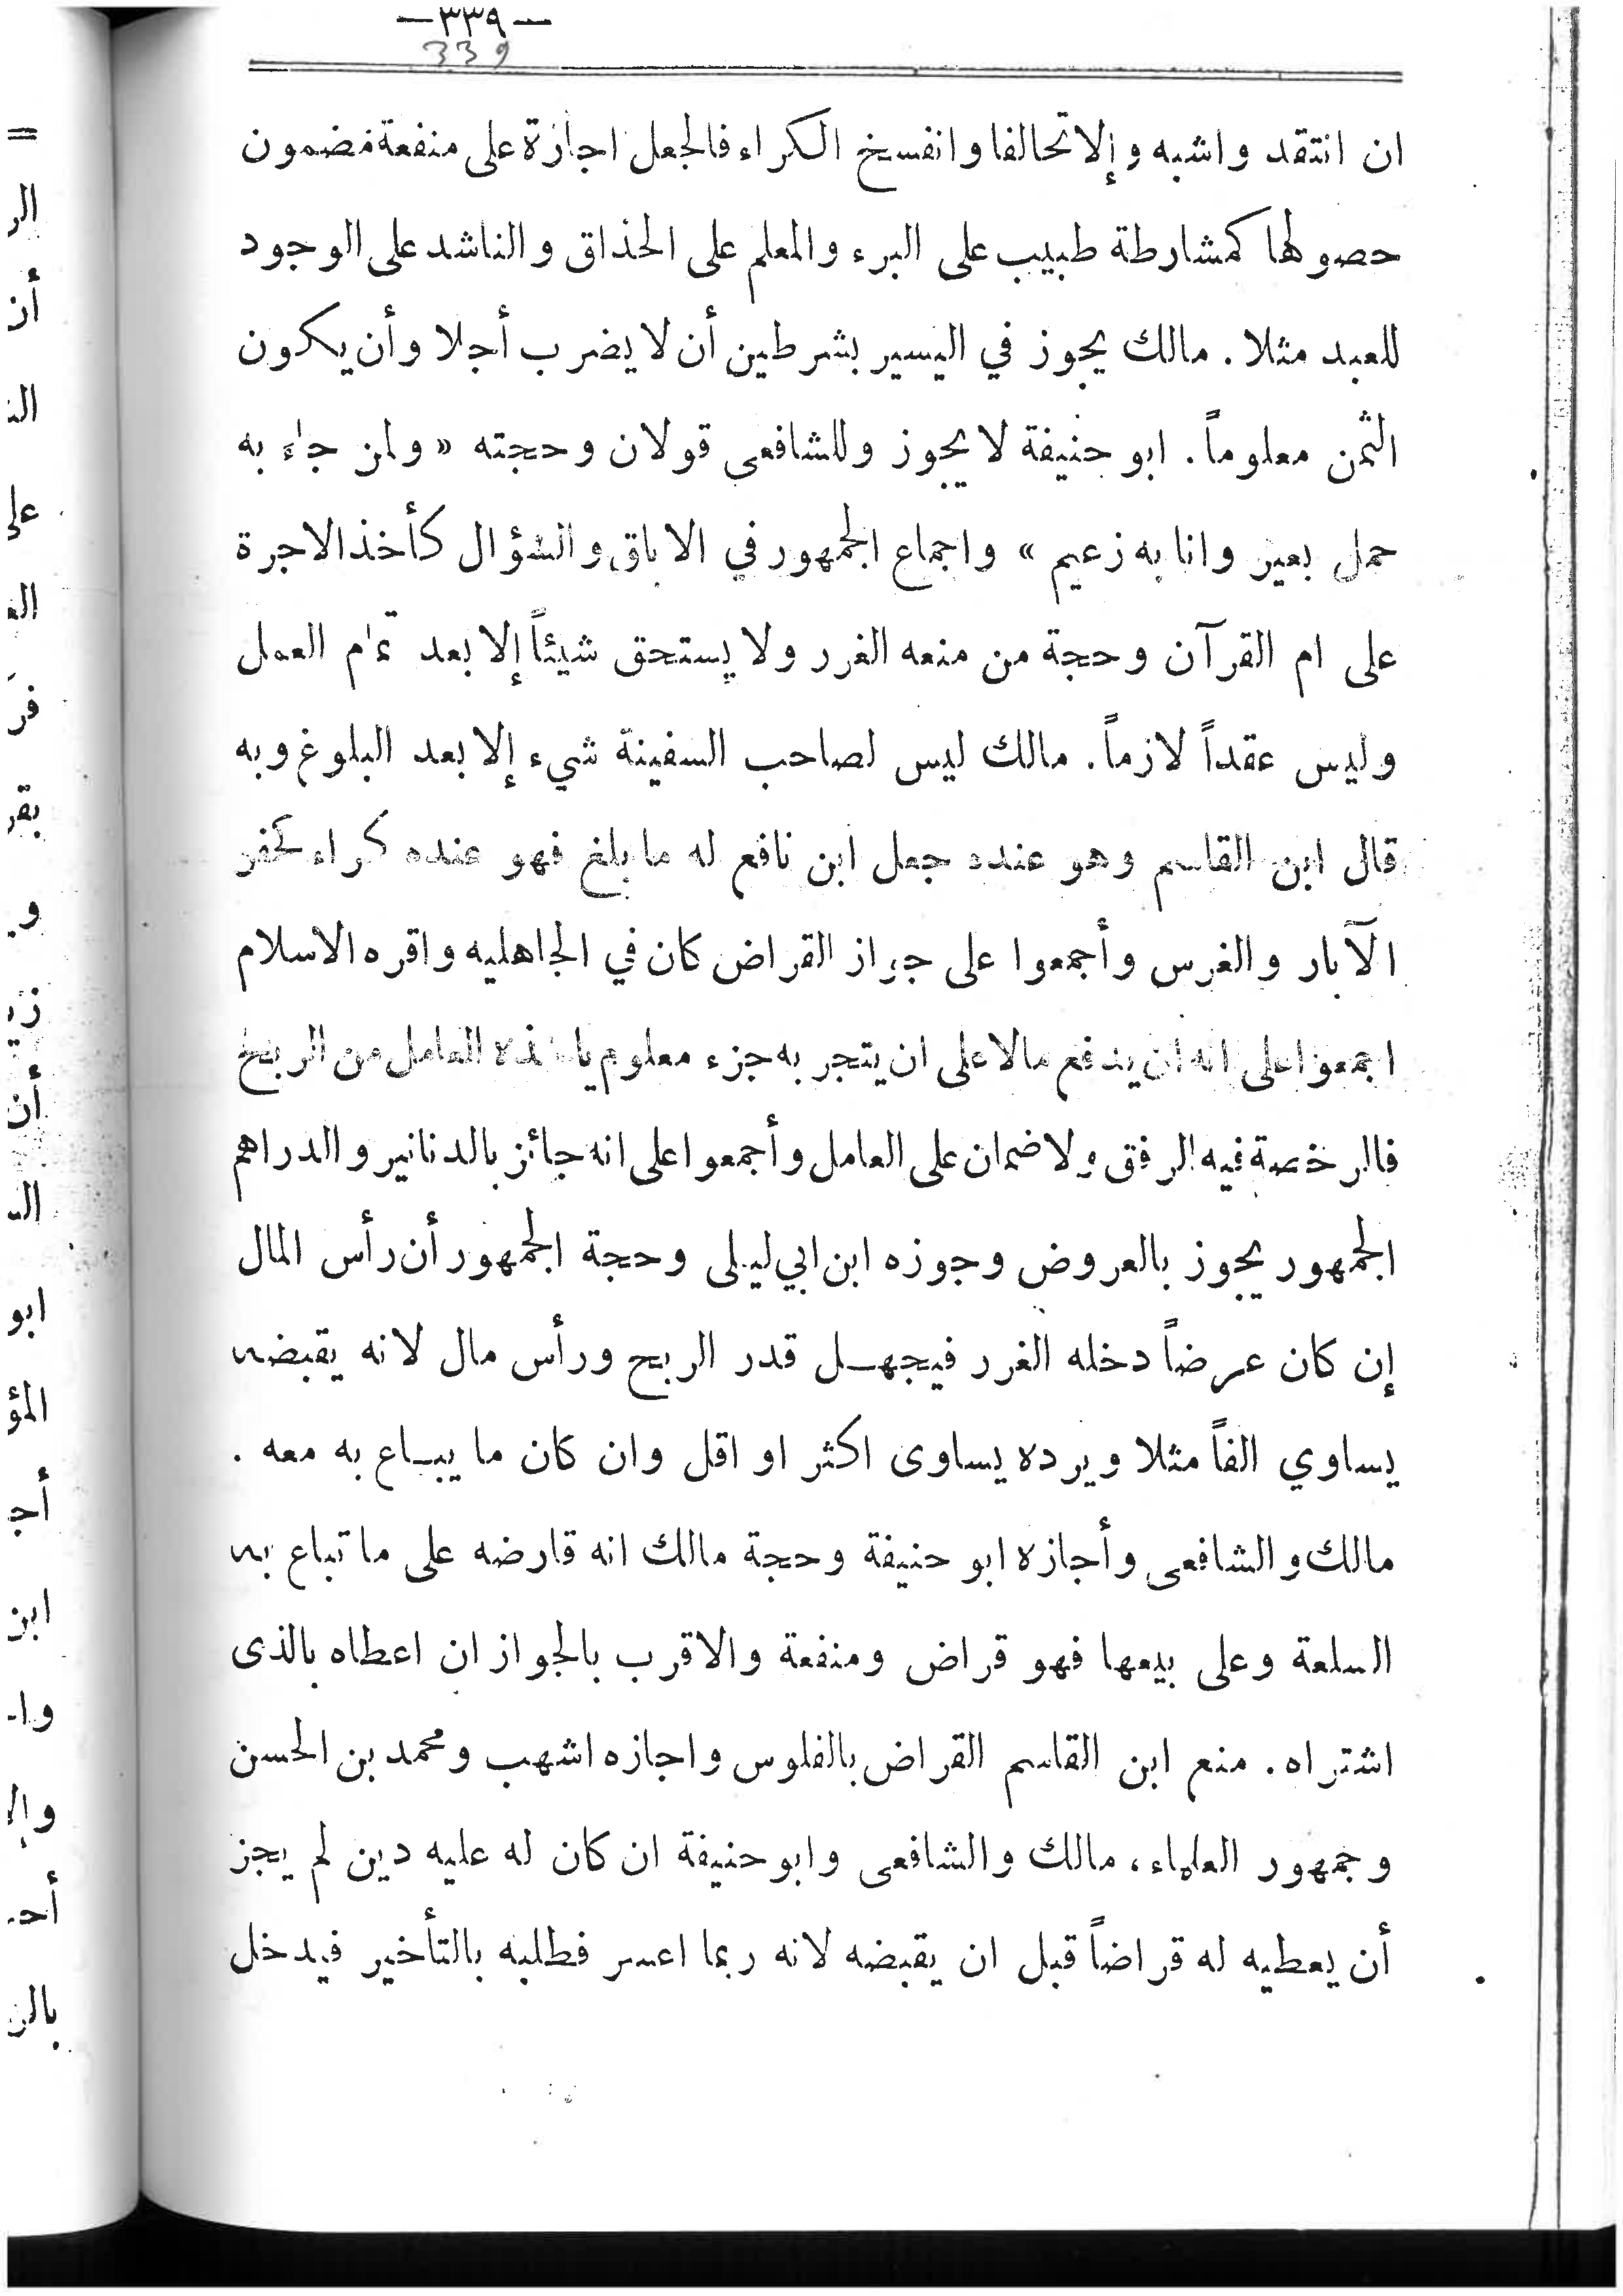 —٣٣٩—
339
ان انتقد واشبه وإلا تحالفا وانفسخ الكراء فالجعل اجازة على منفعة مضمون
حصولها كمشارطة طبيب على البرء والمعلم على الحذاق والناشد على الوجود
للعبد مثلا. مالك يجوز في اليسير بشرطين أن لا يضرب أجلا وأن يكون
الثمن معلوماً. ابو حنيفة لا يجوز وللشافعى قولان وحجته « ولمن جاء به
حمل بعير وانا به زعيم » واجماع الجمهور في الاباق والسؤال كأخذ الاجرة
على ام القرآن وحجة من منعه الغرر ولا يستحق شيئاً إلا بعد تمام العمل
وليس عقداً لازماً. مالك ليس لصاحب السفينة شيء إلا بعد البلوغ وبه
قال ابن القاسم وهو عنده جعل ابن نافع له ما بلغ فهو عنده كراء كحفر
الآبار والغرس وأجمعوا على جواز القراض كان في الجاهليه واقره الاسلام
اجمعوا على انه ان يدفع مالا على ان يتجر به جزء معلوم ياخذه العامل من الربح
فالرخصة فيه الرفق ولا ضمان على العامل وأجمعوا على انه جائز بالدنانير والدراهم
الجمهور يجوز بالعروض وجوزه ابن ابي ليلى وحجة الجمهور أن رأس المال
إن كان عرضاً دخله الغرر فيجهل قدر الربح ورأس مال لانه يقبضه
يساوي الفاً مثلا ويرده يساوى اكثر او اقل وان كان ما يباع به معه .
مالك والشافعى وأجازه ابو حنيفة وحجة مالك انه قارضه على ما تباع به
السلعة وعلى بيعها فهو قراض ومنفعة والاقرب بالجواز ان اعطاه بالذى
اشتراه. منع ابن القاسم القراض بالفلوس واجازه اشهب ومحمد بن الحسن
وجمهور العلماء، مالك والشافعى وابو حنيفة ان كان له عليه دين لم يجز
أن يعطيه له قراضاً قبل ان يقبضه لانه ربما اعسر فطلبه بالتأخير فيدخل